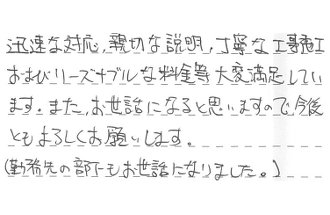 迅速な対応,親切な説明,丁寧な工事施工
およびリーズナブルな料金等大変満足してい
ます。また、お世話になると思いますので、今後
ともよろしくお願いします。
(勤務先の部下もお世話になりました。)